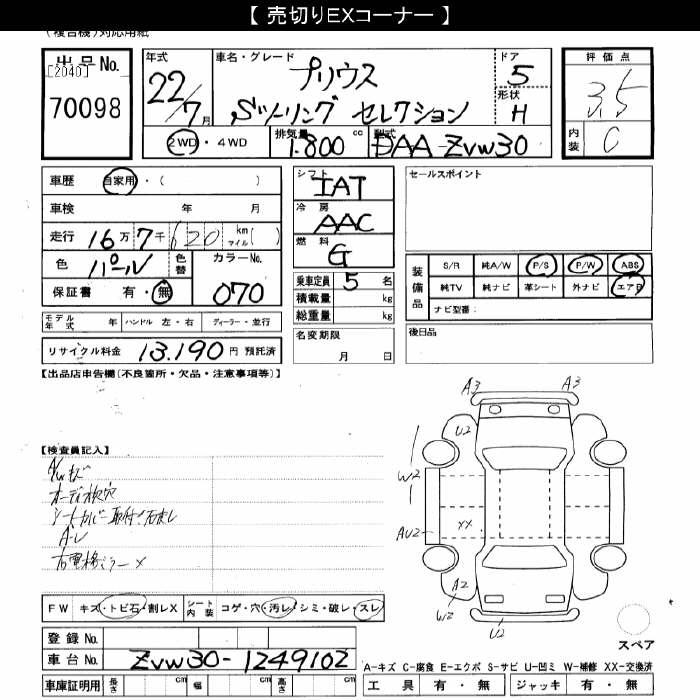 【 売切りEXコーナー 】
(複合機)対応用紙
出品No.
[2040]
70098
年式
22/7月
車名・グレード
プリウス
Sツーリング セレクション
ドア
5
形状
H
評価点
3.5
内装
C
2WD・4WD
排気量
1.800 cc
型式
DAA-ZVW30
車歴 自家用・( )
車検 年 月
走行 16万7千620 km マイル( )
色 パール
色替
カラーNo.
070
保証書 有・無
シフト
IAT
冷房
AAC
燃料
G
乗車定員 5 名
積載量 kg
総重量 kg
セールスポイント
装備品
S/R 純A/W P/S P/W ABS
純TV 純ナビ 革シート 外ナビ エアB
ナビ型番:
モデル年式 年 ハンドル 左・右 ディーラー・並行
リサイクル料金 13.190 円 預託済
名変期限
月 日
後日品
【出品店申告欄(不良箇所・欠品・注意事項等)】
A3 A3
U2 U2
【検査員記入】
W2
XX
AU2
A2
W2
U2
FW キズ・トビ石・割レX シート内装 コゲ・穴・汚レ・シミ・破レ・スレ
登録No.
車台No. ZVW30-1249102
スペア
A-キズ C-腐食 E-エクボ S-サビ U-凹ミ W-補修 XX-交換済
車庫証明用 長さ cm 幅 cm 高さ cm
工具 有・無 ジャッキ 有・無